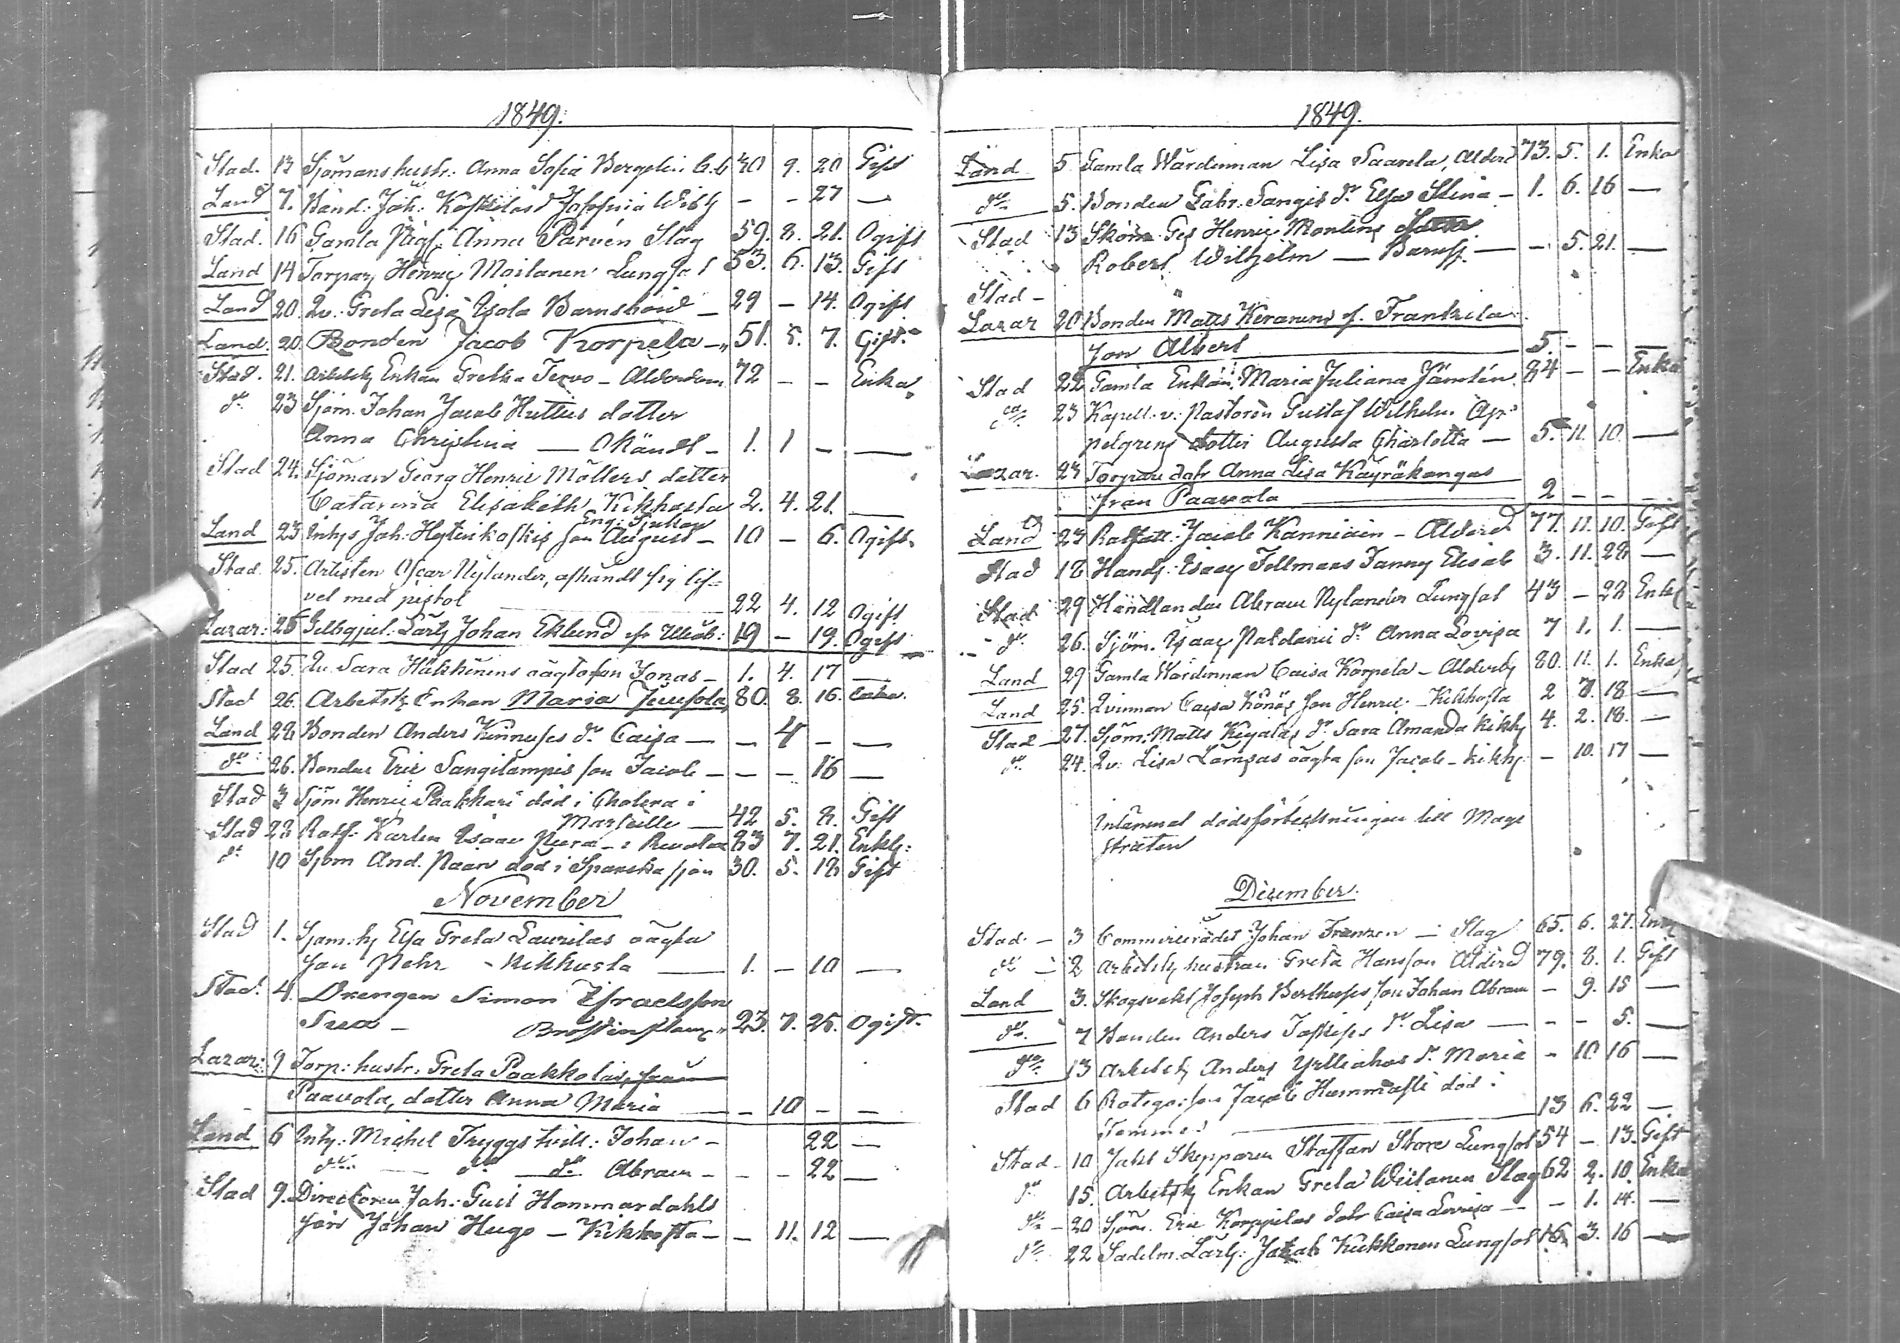 1849.
Stad. 13 Sjömanshustr. Anna Sofia Bergelin 30 9. 20 Gift
Land 7. Bond. Joh. Koskelas d. Josefina - - 27 —
Stad. 16 Gamla Pigs. Anna Parvén Slag 59. 8. 21. Ogift
Land 14 Torpar Henric Moilanen Lungsot 53. 6. 13. Gift
Land 20. Qv. Greta Lisa Ysola Barnsbörd — 29 — 14. Ogift
Land. 20. Bonden Jacob Korpela — 51. 5. 7. Gift.
Stad. 21. Arbetsk Enkan Gretha Tervo — Ålderdom 72 - - Enka
do 23 Sjöm. Johan Jacob Huttus dotter
Anna Christina — Okändt — 1. 1 - —
Stad 24. Sjöman Georg Henric Möllers dotter
Catarina Elisabeth Kikhosta 2. 4. 21. —
Land 23 Inhys Joh. Heikinkoskis son August — 10 — 6. Ogift.
Stad 25. Artisten Oscar Nylander, afhändt sig lif-
vet med pistol 22 4. 12 Ogift
Lazar: 25 Gelbgjut. Lärl Johan Eklund fr Uleåb: 19 — 19. Ogift
Stad 25. Qv. Sara Häkkinens oägta son Jonas — 1. 4. 17 —
Stad 26. Arbetsk Enkan Maria Juusola 80. 8. 16. Enka.
Land 28 Bonden Anders Kinnuses dr Caisa — — 4 - —
do 26. Bonden Eric Sangilampis son Jacob — - - 16 —
Stad 3 Sjöm Henric Paakkari död i Cholera i
Marseille — 42 5. 8. Gift
Stad 28 Rotf. Karlen Isaac Pura 83 7. 21. Enkl:
do 10 Sjöm And. Paan död i Spanska sjön 30. 5. 18 Gift
November
Stad 1. Sjöm. h Elsa Greta Laurilas oägta
son Pehr — Kikhosta — 1. — 10 —
Stad. 4. Drengen Simon Israelsson
Sua — Bröstinflam. 23. 7. 25. Ogift.
Lazar: 9 Torp: hustr. Greta Paakkolas, från
Paavola, dotter Anna Maria — — 10 - —
Land 6 Inhy: Michel Tryggs tvill: Johan — 22 —
do — do do Abram - - - 22 —
Stad 9. Directoren Joh: Gust Hammardahls
son Johan Hugo — Kikhosta — — 11. 12 —
1849.
Land 5 Gamla Värdinnan Lisa Saarela, Ålderd 73. 5. 1. Enka
do 5. Bonden Gabr. Sangis dr Elsa Stina — 1. 6. 16 —
Stad 13 Skom. Ges Henric Montins
Robert Wilhelm — — — 5. 21. —
Stad —
Lazar 20 Bonden Matts Keränens f. Frantsila
son Albert 5. - - —
Stad 22 Gamla Enkan Maria Juliana Jämtén 84 - - Enka
do 23 Kapell. v. Pastoren Gustaf Wilhelm Ap-
pelgrens dotter Augusta Charlotta — 5. 11. 10. —
Lazar. 24 Torpare dotr Anna Lisa Käyräkangas
från Paavola 2 - - -
Land 23 Rotfatt: Jacob Kanniain — Ålderd 77. 11. 10. Gift
Stad 18 Handl. Isaac Fellmans Fanny Elisab 3. 11. 28 —
Stad 29 Handlanden Abram Nylander Lungsot 43 — 28 Enkl
do 26. Sjöm. Isaac Paldani dr Anna Lovisa 7 1. 1. —
Land 29 Gamla Värdinnan Caisa Korpela — Ålderd 80. 11. 1. Enka
Land 25. Qvinnan Caisa Könös son Henric — Kikhosta 2 7. 18 —
Stad — 27. Sjöm. Matts Keyalas dr Sara Amanda Kikh 4. 2. 18. —
do 24. Qv. Lisa Lämsas oägta son Jacob — kikh — 10. 17 —
Inlämnat dödsförteckningen till Magi
straten
December.
Stad. — 3 Commerserådet Johan Franzen — Slag 65. 6. 27. Enkl
do — 2 Arbetsk hustrun Greta Hansson Ålderd 79. 8. 1. Gift
Land 3. Skogsvakt Joseph Berthuses son Johan Abram — 9. 15 —
do 7 Bonden Anders Jaskeses dr Lisa — - - 5. —
do 13 Arbetsk Anders Yrlleahos dr Maria — 10 16 —
Stad 6 Rotegos: son Jacob Hammasti död i
13 6. 22 —
Stad — 10 Jakt Skepparen Staffan Store Lungsot 54 — 13. Gift
do 15. Arbetsk Enkan Greta Weilanen Slag 62 2. 10. Enka
do — 20 Sjöm. Eric Korppilas dotr Caisa Lovisa — — 1. 14. —
do 22 Sadelm. Lärl: Jakob Kukkonen Lungsot 16. 3. 16 —